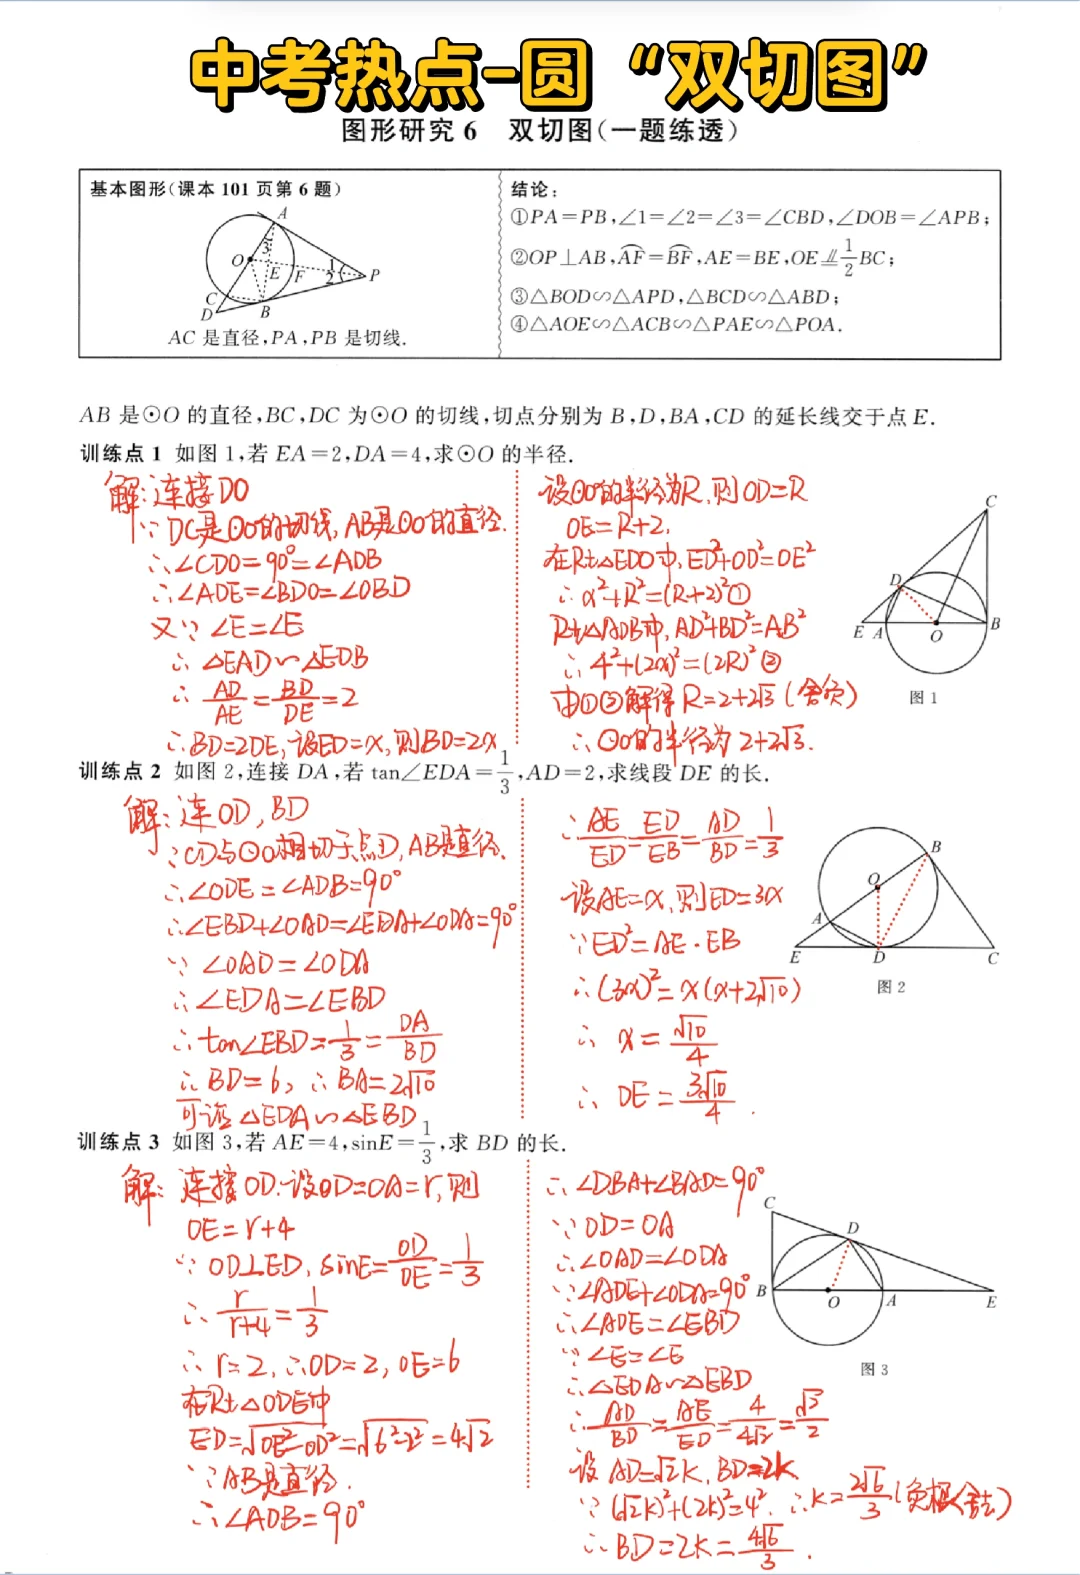 中考热点-圆“双切图”
图形研究6 双切图(一题练透)
基本图形(课本101页第6题)
A
3
O
E
F
1
2
P
C
D
B
AC是直径,PA,PB是切线.
结论:
①PA=PB,∠1=∠2=∠3=∠CBD,∠DOB=∠APB;
②OP⊥AB,AF=BF,AE=BE,OE∥=1/2BC;
③△BOD∽△APD,△BCD∽△ABD;
④△AOE∽△ACB∽△PAE∽△POA.
AB是⊙O的直径,BC,DC为⊙O的切线,切点分别为B,D,BA,CD的延长线交于点E.
训练点1 如图1,若EA=2,DA=4,求⊙O的半径.
解:连接DO
∵DC是⊙O的切线,AB是⊙O的直径.
∴∠CDO=90°=∠ADB
∴∠ADE=∠BDO=∠OBD
又∵∠E=∠E
∴△EAD∽△EDB
∴AD/AE=BD/DE=2
∴BD=2DE,设ED=x,则BD=2x
设⊙O的半径为R,则OD=R
OE=R+2,
在Rt△EDO中,ED²+OD²=OE²
∴x²+R²=(R+2)²①
Rt△ADB中,AD²+BD²=AB²
∴4²+(2x)²=(2R)²②
由①②解得R=2+2√3(舍负)
∴⊙O的半径为2+2√3.
C
D
E
A
O
B
图1
训练点2 如图2,连接DA,若tan∠EDA=1/3,AD=2,求线段DE的长.
解:连OD,BD
∵CD与⊙O相切于点D,AB是直径.
∴∠ODE=∠ADB=90°
∴∠EBD+∠OAD=∠EDA+∠ODA=90°
∵∠OAD=∠ODA
∴∠EDA=∠EBD
∴tan∠EBD=1/3=DA/BD
∴BD=6,∴BA=2√10
可证△EDA∽△EBD
∴AE/ED=ED/EB=AD/BD=1/3
设AE=x,则ED=3x
∵ED²=AE·EB
∴(3x)²=x(x+2√10)
∴x=√10/4
∴DE=3√10/4.
B
O
A
E
D
C
图2
训练点3 如图3,若AE=4,sinE=1/3,求BD的长.
解:连接OD.设OD=OA=r,则
OE=r+4
∵OD⊥ED,sinE=OD/OE=1/3
∴r/r+4=1/3
∴r=2,∴OD=2,OE=6
在Rt△ODE中
ED=√OE²-OD²=√6²-2²=4√2
∵AB是直径.
∴∠ADB=90°
∴∠DBA+∠BAD=90°
∵OD=OA
∴∠OAD=∠ODA
∵∠ADE+∠ODA=90°
∴∠ADE=∠EBD
∵∠E=∠E
∴△EDA∽△EBD
∴AD/BD=AE/ED=4/4√2=√2/2
设AD=√2k,BD=2k
∵(√2k)²+(2k)²=4²,∴k=2√6/3(负根舍去)
∴BD=2k=4√6/3.
C
D
B
O
A
E
图3